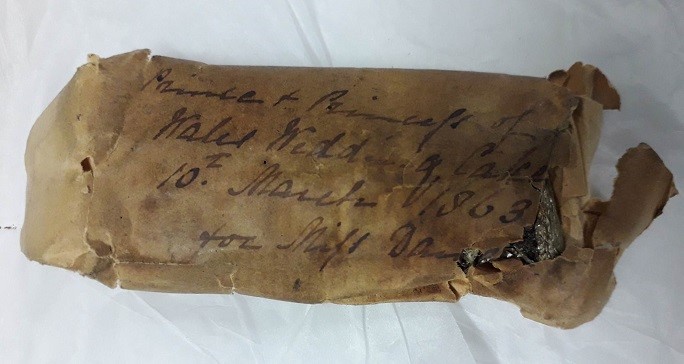 Prince & Princess of
Wales Wedding Cake
10th March 1863
for Miss